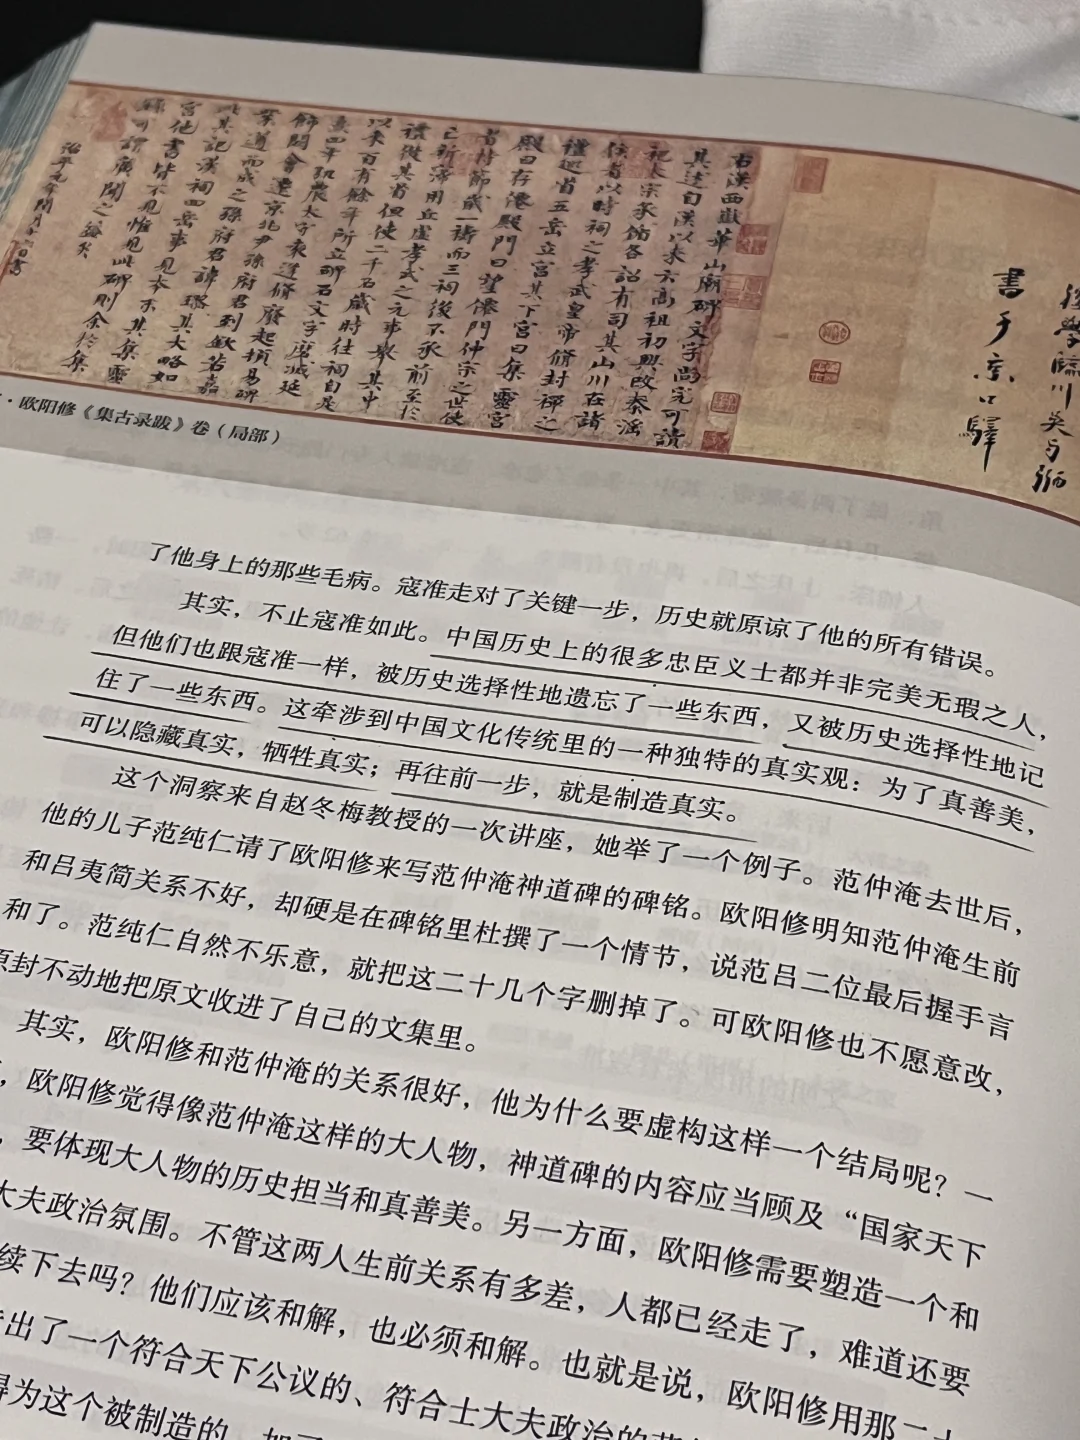 右漢西嶽華山廟碑文字尚完可讀
其述自漢以來云高祖初興改秦淫
祀太宗承循各詔有司其山川在諸
侯者以時祠之孝武皇帝脩封禪之
禮巡省五岳立宮其下宮曰集靈宮
殿曰存僊殿門曰望僊門仲宗之世使
者持節歲一禱而三祠後不承前至於
亡新寖用丘虛孝武之元事舉其中
禮從其省但使二千石歲時往祠自是
以來百有餘年所立碑石文字磨滅延
熹四年弘農太守袁逢脩廢起頓易碑
飾闕會遷京兆尹孫府君到欽若嘉
業遵而成之孫府君諱璆其大略如
此其記漢祠四岳事見本末其集靈
宮他書皆不見惟見此碑則余於集
錄可謂廣聞之益矣
治平元年閏月十六日書
後學臨川吳與弼
書于京口驛
·欧阳修《集古录跋》卷（局部）
了他身上的那些毛病。寇准走对了关键一步，历史就原谅了他的所有错误。
其实，不止寇准如此。中国历史上的很多忠臣义士都并非完美无瑕之人，
但他们也跟寇准一样，被历史选择性地遗忘了一些东西，又被历史选择性地记
住了一些东西。这牵涉到中国文化传统里的一种独特的真实观：为了真善美，
可以隐藏真实，牺牲真实；再往前一步，就是制造真实。
这个洞察来自赵冬梅教授的一次讲座，她举了一个例子。范仲淹去世后，
他的儿子范纯仁请了欧阳修来写范仲淹神道碑的碑铭。欧阳修明知范仲淹生前
和吕夷简关系不好，却硬是在碑铭里杜撰了一个情节，说范吕二位最后握手言
和了。范纯仁自然不乐意，就把这二十几个字删掉了。可欧阳修也不愿意改，
原封不动地把原文收进了自己的文集里。
其实，欧阳修和范仲淹的关系很好，他为什么要虚构这样一个结局呢？一
，欧阳修觉得像范仲淹这样的大人物，神道碑的内容应当顾及“国家天下
，要体现大人物的历史担当和真善美。另一方面，欧阳修需要塑造一个和
大夫政治氛围。不管这两人生前关系有多差，人都已经走了，难道还要
续下去吗？他们应该和解，也必须和解。也就是说，欧阳修用那二十
出了一个符合天下公议的、符合士大夫政治的
得为这个被制造的